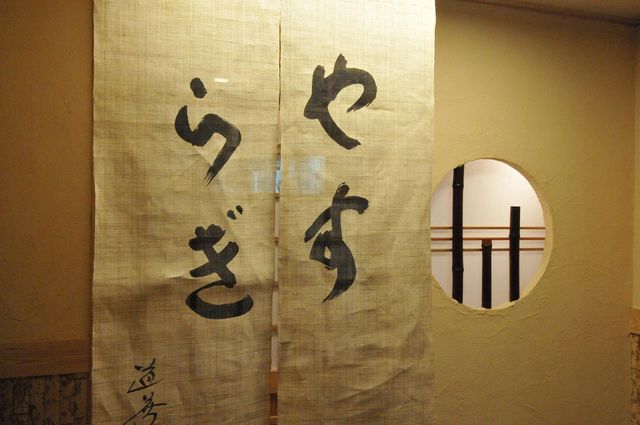 やす
らぎ
道